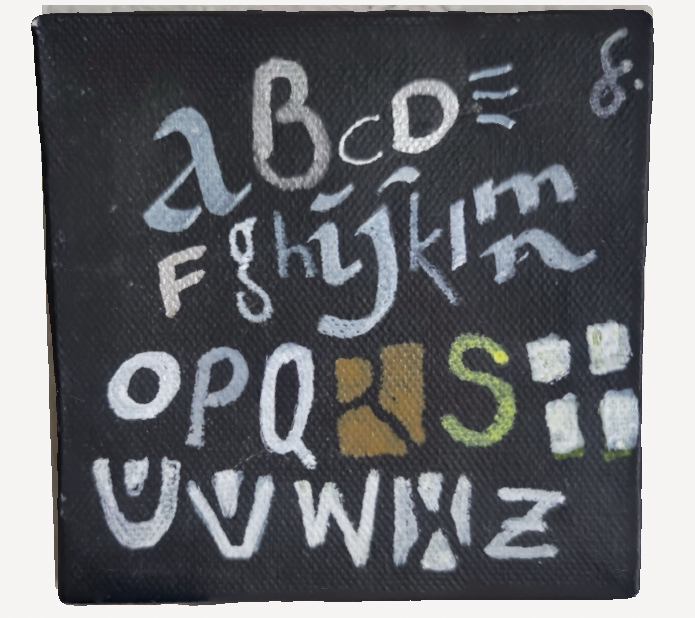 a B c D E
F g h i j k l m n
O P Q R S T
U V W X Z